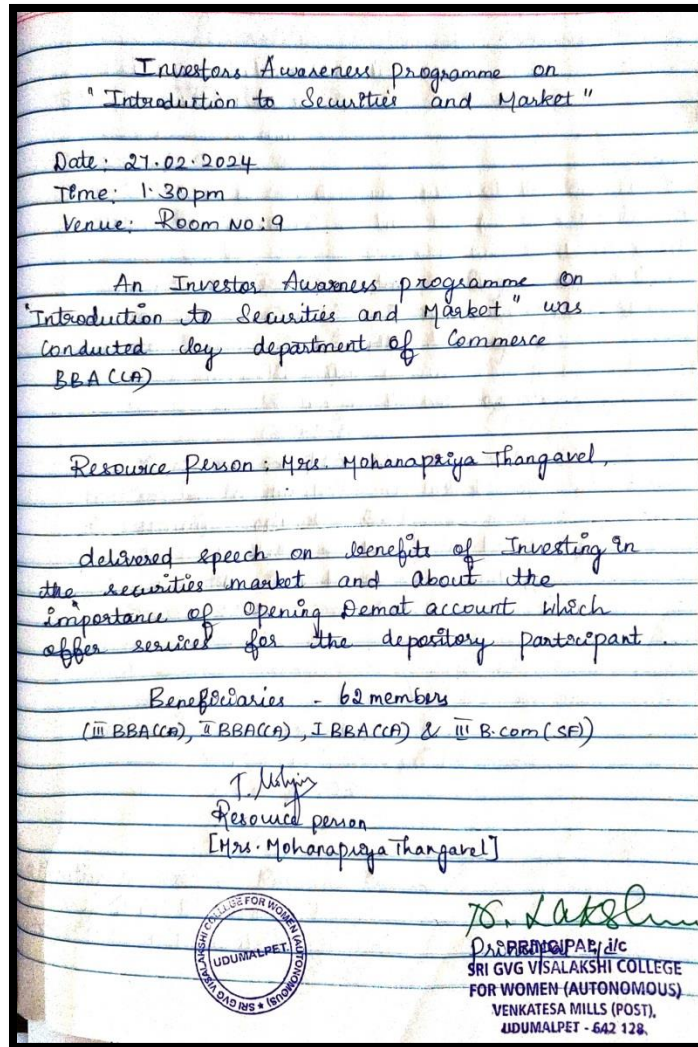 Investors Awareness programme on
"Introduction to Securities and Market"
Date: 27.02.2024
Time: 1.30pm
Venue: Room No:9
An Investor Awarness programme on
"Introduction to Securities and Market" was
conducted by department of Commerce
BBA (CA)
Resource Person: Mrs. Mohanapriya Thangavel,
delivered speech on benefits of Investing in
the securities market and about the
importance of opening Demat account which
offer services for the depository participant.
Beneficiaries - 62 members
(III BBA(CA), II BBA(CA), I BBA(CA) & III B.com(SF))
Resource person
[Mrs. Mohanapriya Thangavel]
SRI GVG VISALAKSHI COLLEGE FOR WOMEN (AUTONOMOUS)
UDUMALPET
PRINCIPAL i/c
SRI GVG VISALAKSHI COLLEGE
FOR WOMEN (AUTONOMOUS)
VENKATESA MILLS (POST),
UDUMALPET - 642 128.